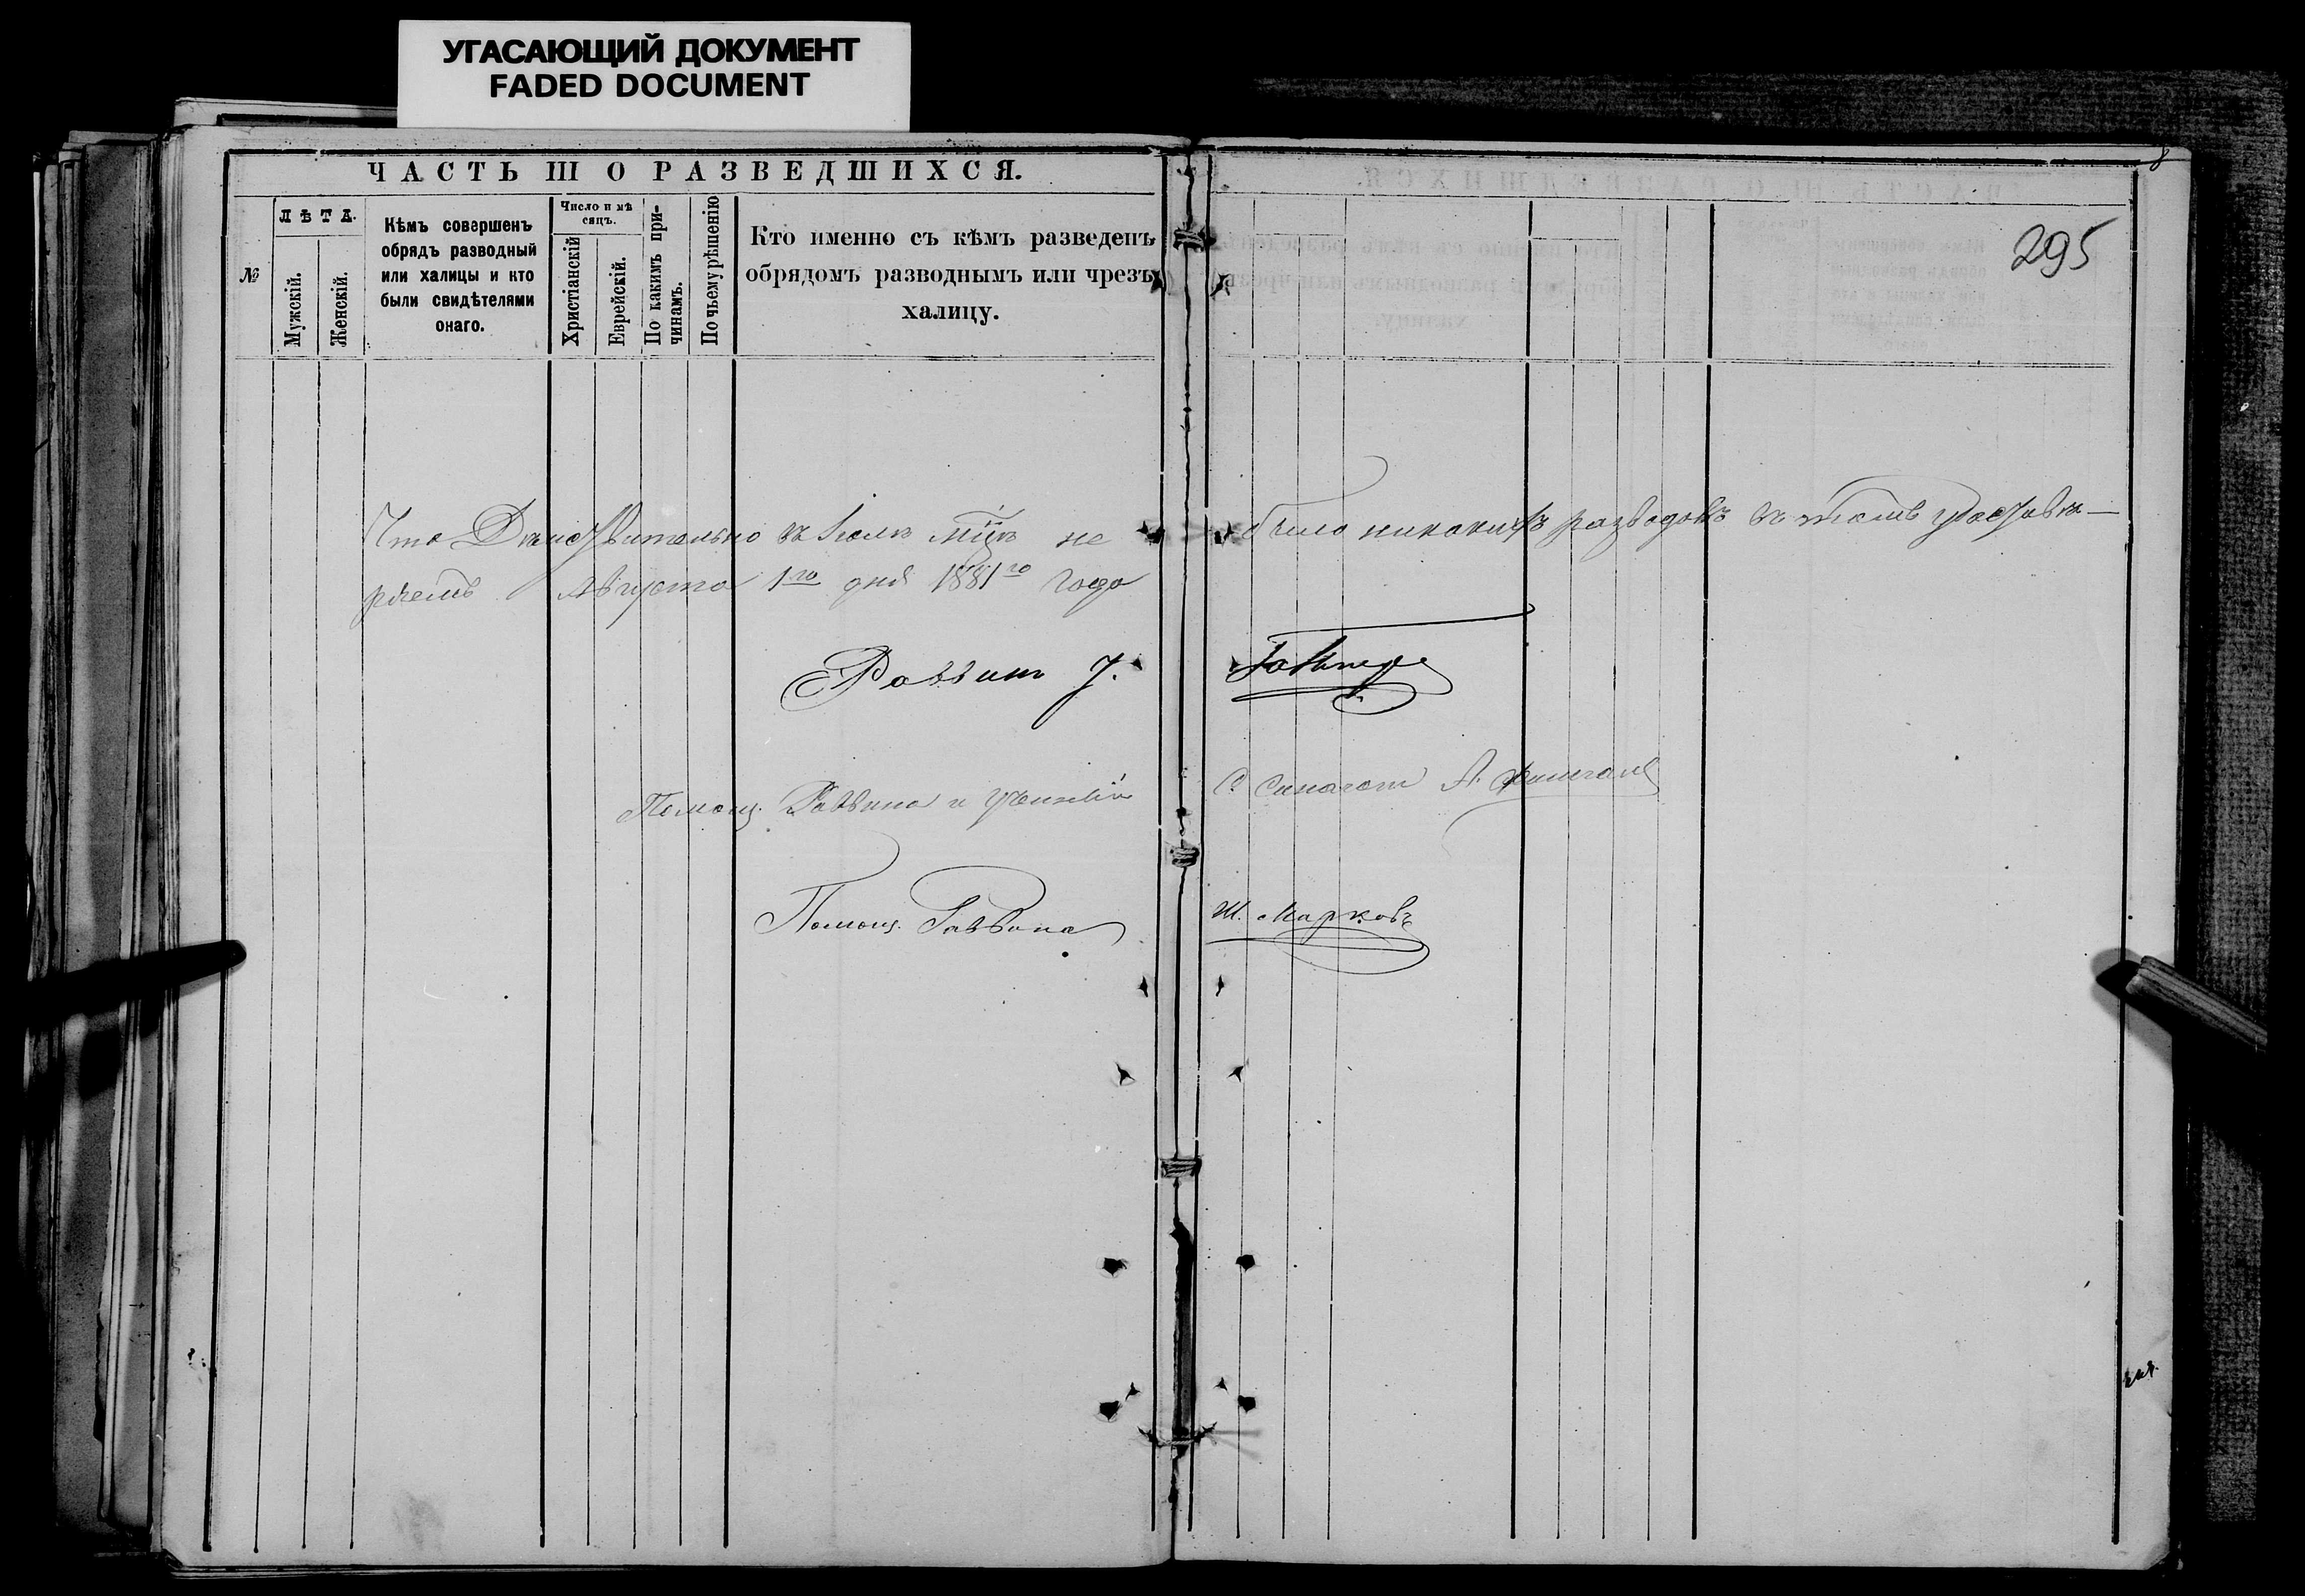 УГАСАЮЩИЙ ДОКУМЕНТ
FADED DOCUMENT
ЧАСТЬ III О РАЗВЕДШИХСЯ.
№
ЛѢТА.
Мужскій.
Женскій.
Кѣмъ совершенъ
обрядъ разводный
или халицы и кто
были свидѣтелями
онаго.
Число и мѣ
сяцъ.
Христіанскій
Еврейскій.
По какимъ при-
чинамъ.
По чьему рѣшенію
Кто именно съ кѣмъ разведенъ
обрядомъ разводнымъ или чрезъ
халицу.
8
295
Что Дѣйствительно въ Іюлѣ мцѣ не было никакихъ разводовъ въ томъ удостовѣ—
ряемъ Августа 1го дня 1881го Года
Раввинъ
Помощ. Раввина и
Помощ. Раввина Ш. Марковъ